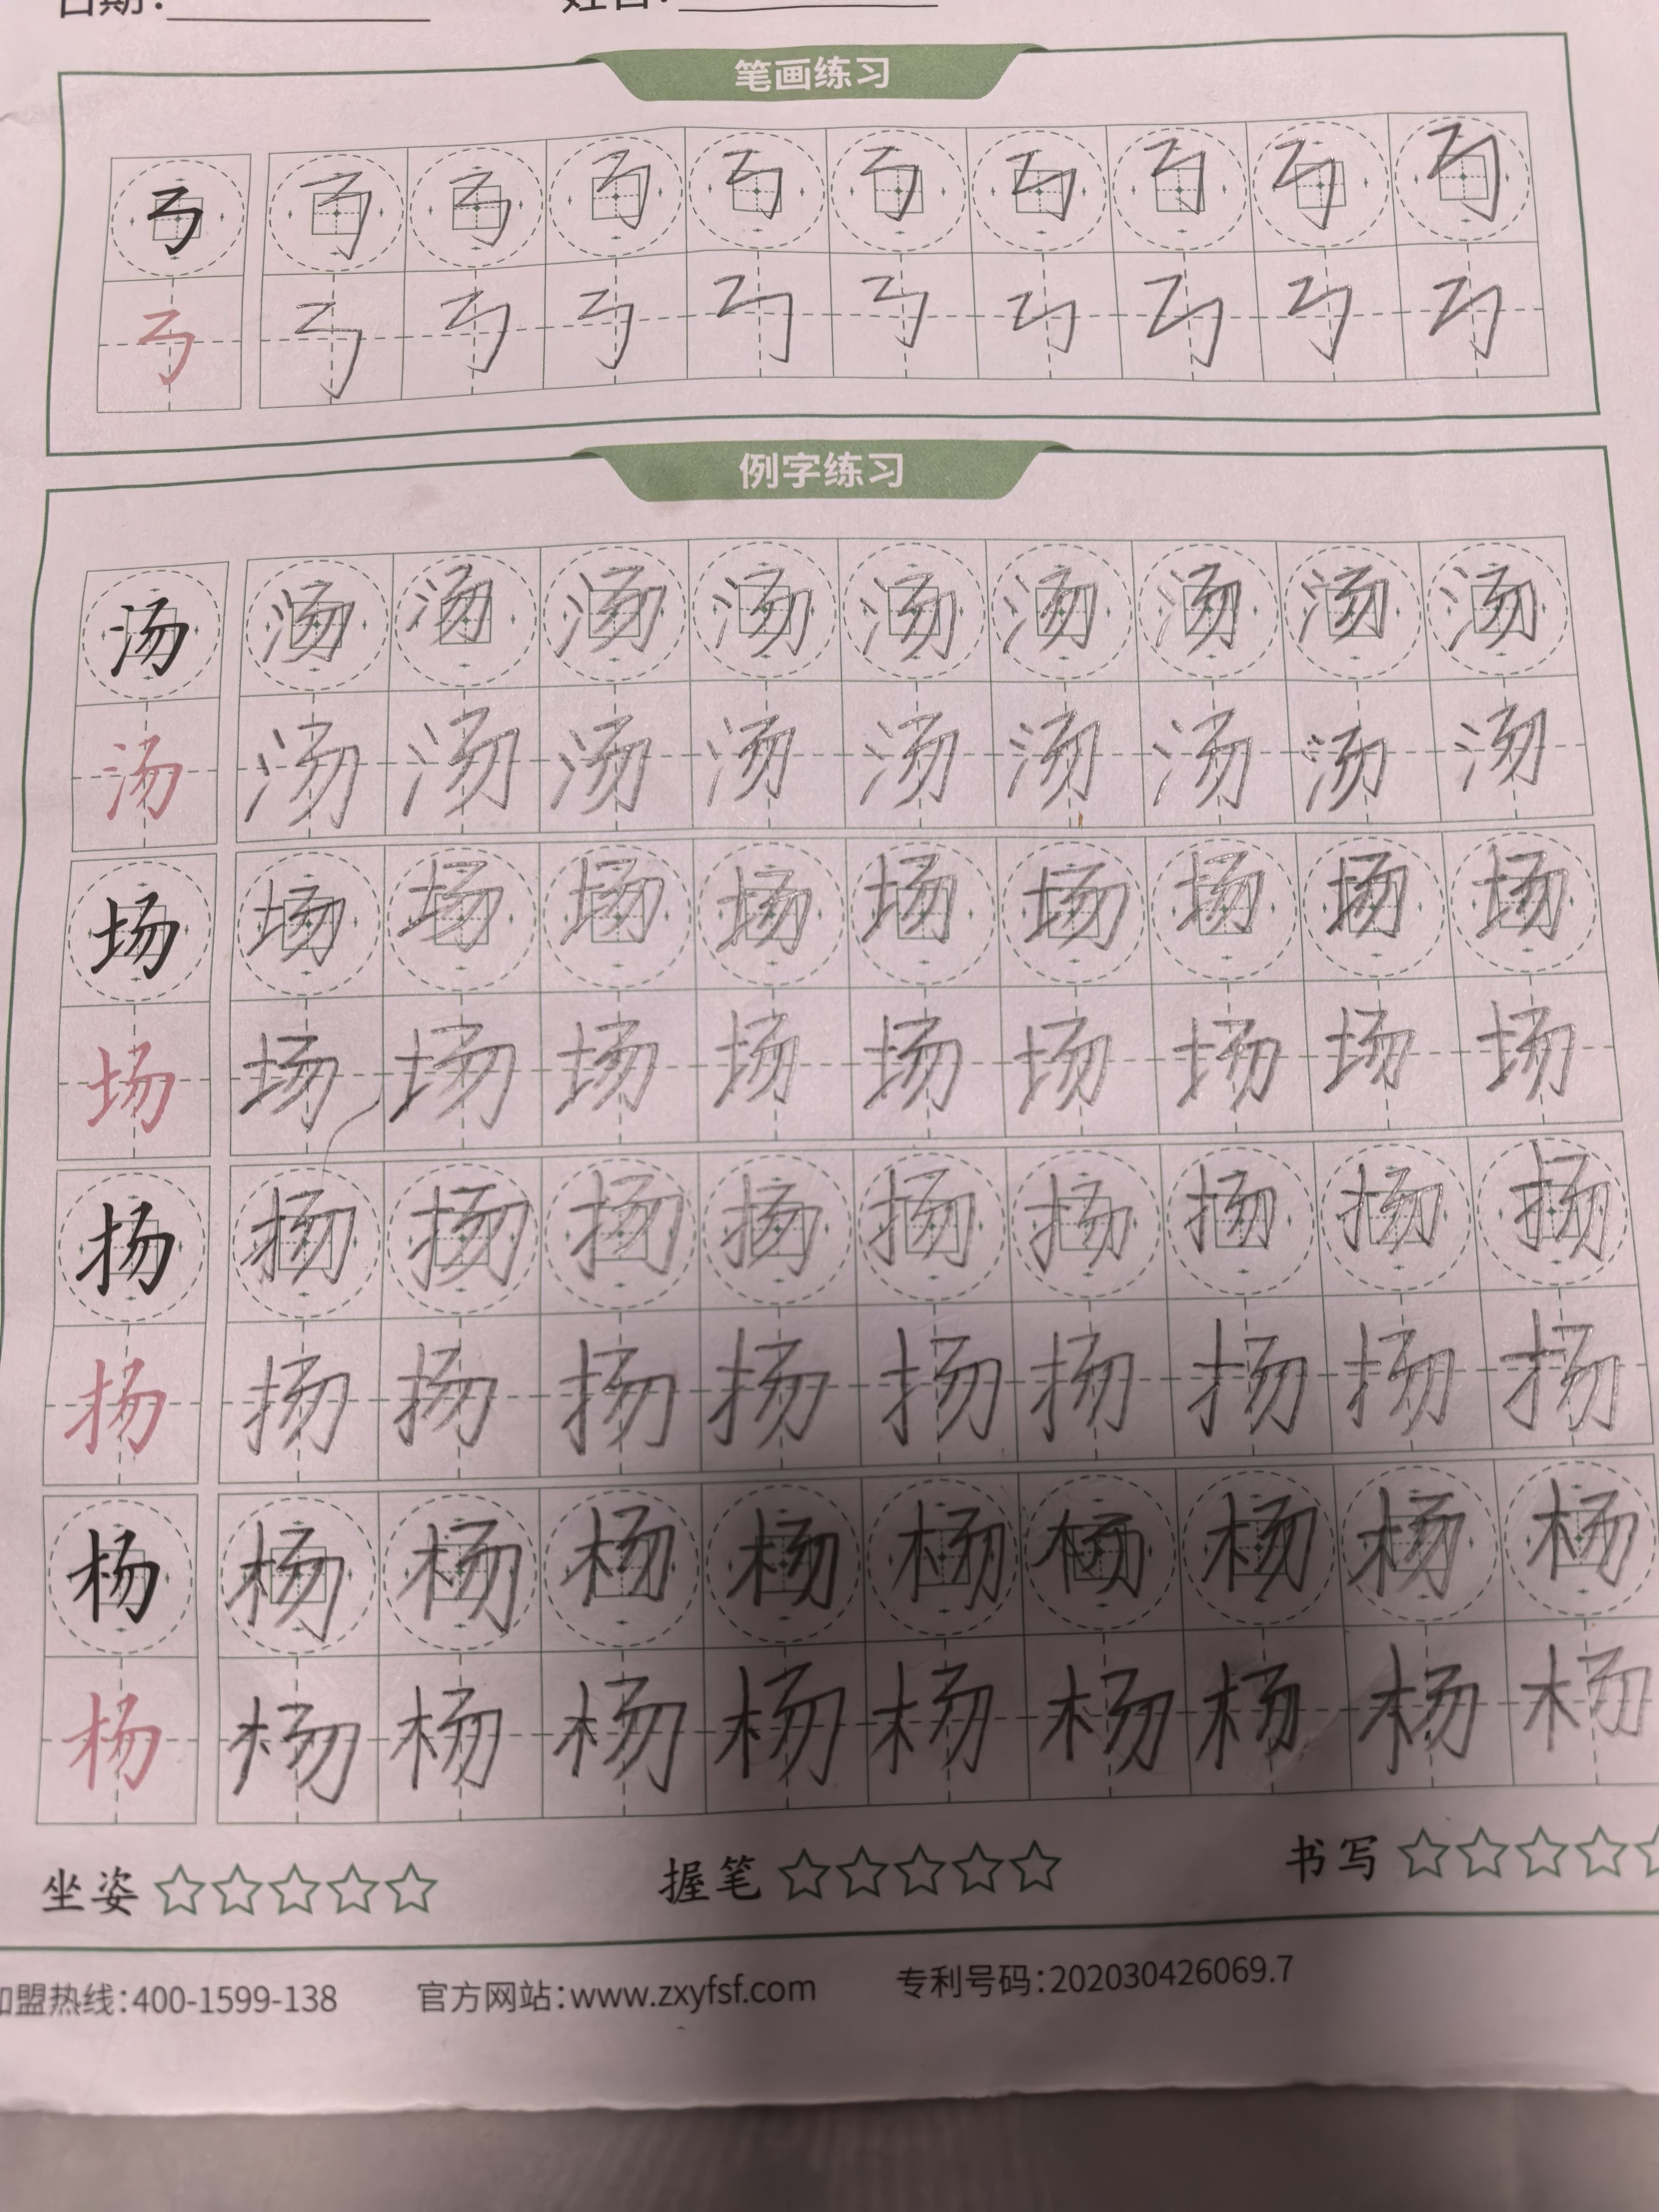 日期： 姓名：
笔画练习
㇉ ㇉ ㇉ ㇉ ㇉ ㇉ ㇉ ㇉ ㇉ ㇉
㇉ ㇉ ㇉ ㇉ ㇉ ㇉ ㇉ ㇉ ㇉ ㇉
例字练习
汤 汤 汤 汤 汤 汤 汤 汤 汤 汤
汤 汤 汤 汤 汤 汤 汤 汤 汤 汤
场 场 场 场 场 场 场 场 场 场
场 场 场 场 场 场 场 场 场 场
扬 扬 扬 扬 扬 扬 扬 扬 扬 扬
扬 扬 扬 扬 扬 扬 扬 扬 扬 扬
杨 杨 杨 杨 杨 杨 杨 杨 杨 杨
杨 杨 杨 杨 杨 杨 杨 杨 杨 杨
坐姿 ☆☆☆☆☆ 握笔 ☆☆☆☆☆ 书写 ☆☆☆☆☆
加盟热线：400-1599-138 官方网站：www.zxyfsf.com 专利号码：202030426069.7